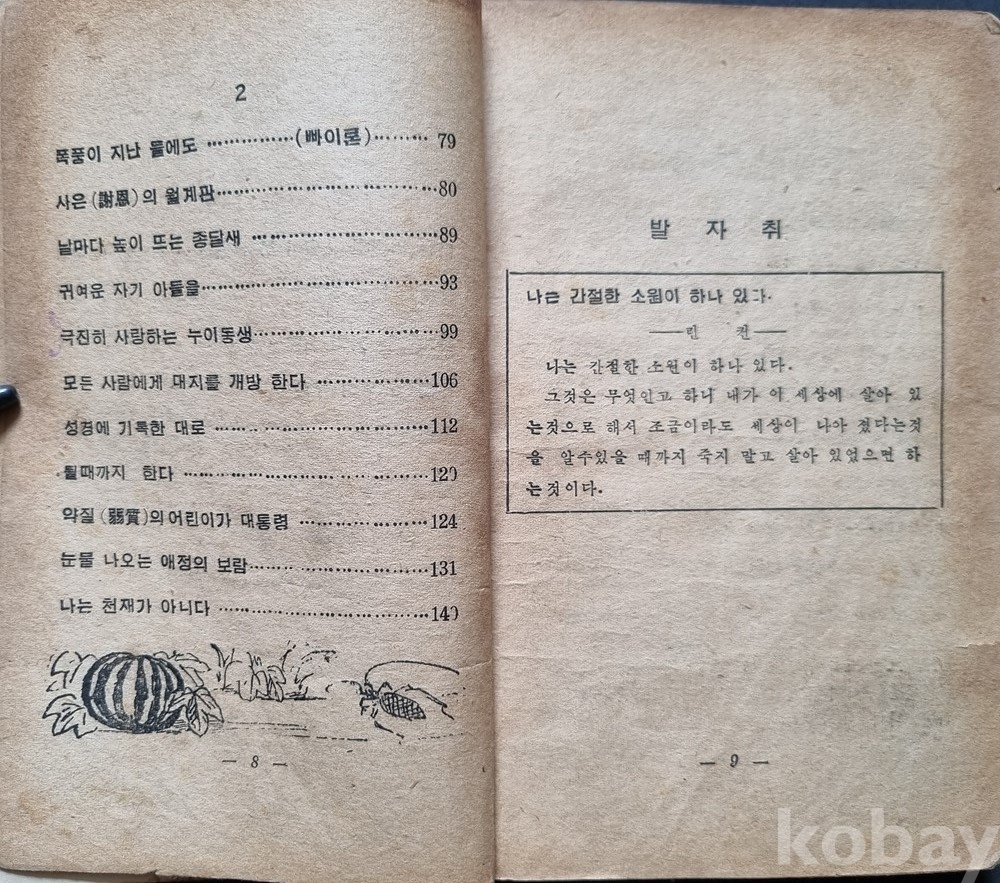 2
폭풍이 지난 들에도 ……………(빠이론)……… 79
사은(謝恩)의 월계관……………………………80
날마다 높이 뜨는 종달새 ………………………89
귀여운 자기 아들을………………………………93
극진히 사랑하는 누이동생………………………99
모든 사람에게 대지를 개방 한다 ……………106
성경에 기록한 대로 ……………………………112
될때까지 한다 …………………………………120
약질(弱質)의 어린이가 대통령 ………………124
눈물 나오는 애정의 보람………………………131
나는 천재가 아니다 ……………………………140
— 8 —
발 자 취
나는 간절한 소원이 하나 있다.
——린 컨——
나는 간절한 소원이 하나 있다.
그것은 무엇인고 하니 내가 이 세상에 살아 있
는것으로 해서 조금이라도 세상이 나아 졌다는것
을 알수있을 때까지 죽지 말고 살아 있었으면 하
는것이다.
— 9 —
kobay